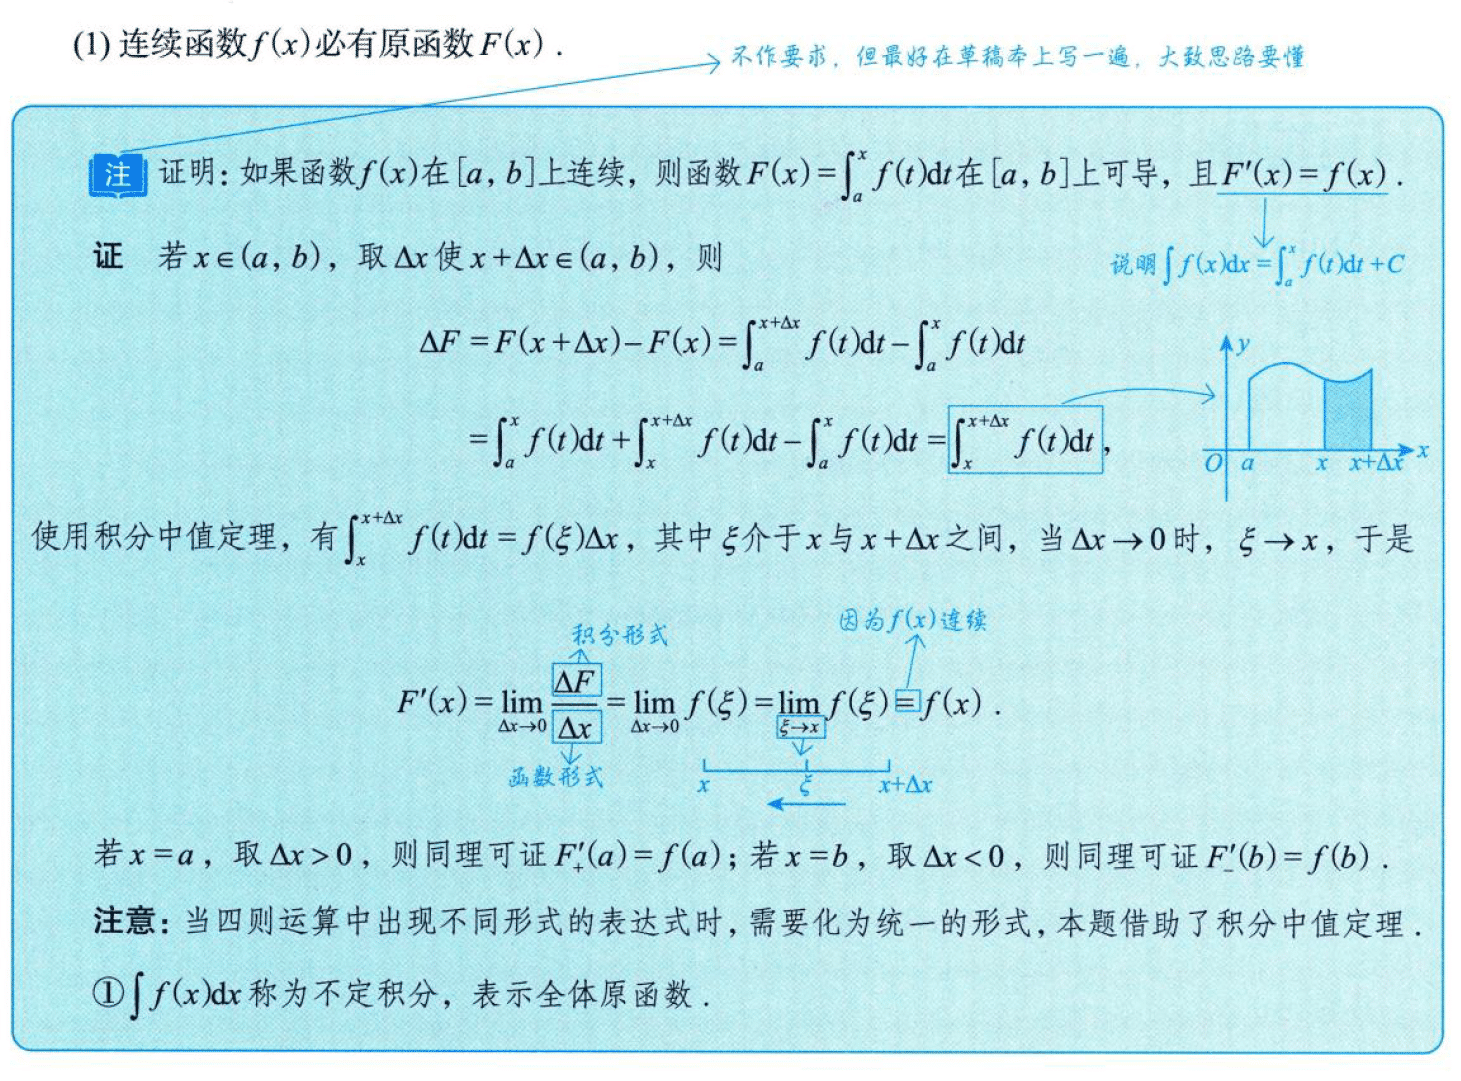 (1) 连续函数f(x)必有原函数F(x).
不作要求，但最好在草稿本上写一遍，大致思路要懂
注 证明：如果函数f(x)在[a, b]上连续，则函数F(x)=∫ₐˣ f(t)dt在[a, b]上可导，且F′(x)=f(x).
证 若x∈(a, b)，取Δx使x+Δx∈(a, b)，则
说明∫f(x)dx=∫ₐˣ f(t)dt+C
ΔF=F(x+Δx)−F(x)=∫_a^{x+Δx} f(t)dt−∫_a^x f(t)dt
=∫_a^x f(t)dt+∫_x^{x+Δx} f(t)dt−∫_a^x f(t)dt=∫_x^{x+Δx} f(t)dt,
y
O a x x+Δx x
使用积分中值定理，有∫_x^{x+Δx} f(t)dt=f(ξ)Δx，其中ξ介于x与x+Δx之间，当Δx→0时，ξ→x，于是
积分形式
因为f(x)连续
F′(x)=lim_{Δx→0} ΔF/Δx=lim_{Δx→0} f(ξ)=lim_{ξ→x} f(ξ)=f(x).
函数形式
x ξ x+Δx
若x=a，取Δx>0，则同理可证F′₊(a)=f(a)；若x=b，取Δx<0，则同理可证F′₋(b)=f(b).
注意：当四则运算中出现不同形式的表达式时，需要化为统一的形式，本题借助了积分中值定理.
①∫f(x)dx称为不定积分，表示全体原函数.